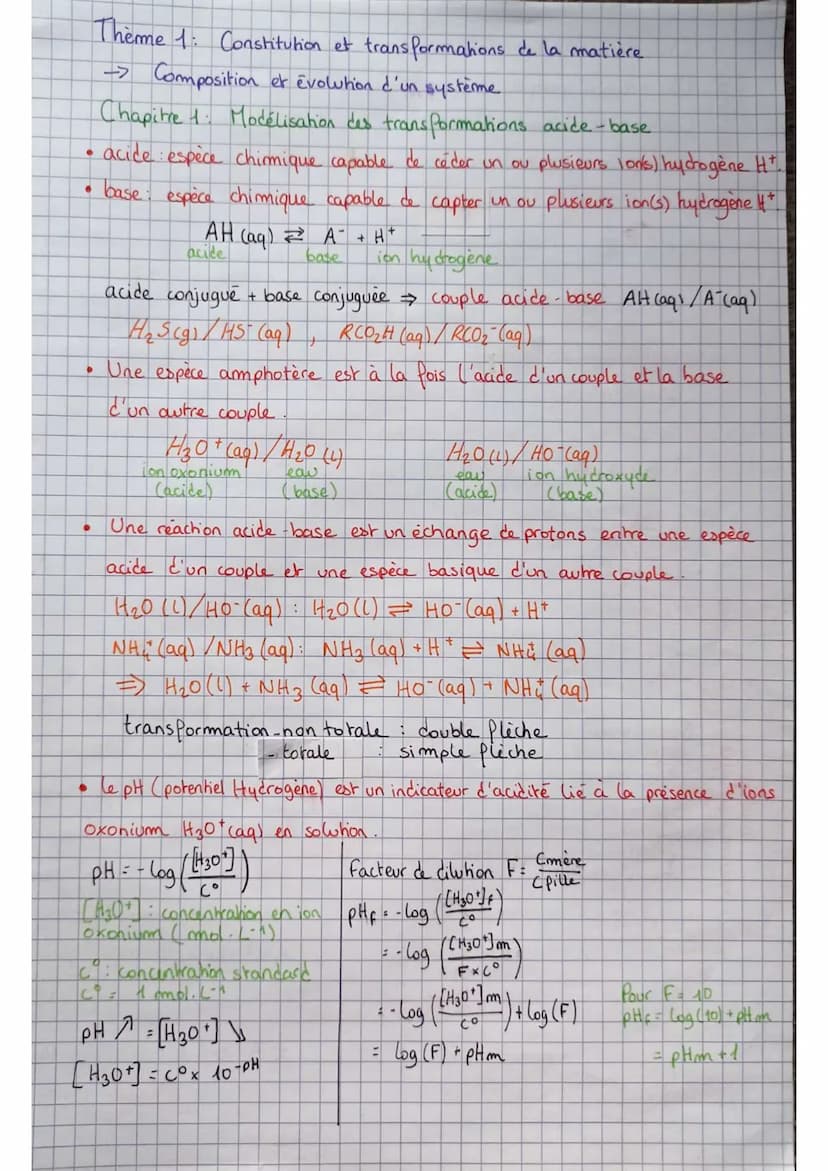 Thème 1 : Constitution et transformations de la matière
→ Composition et évolution d'un système
Chapitre 1 : Modélisation des transformations acide-base
• acide : espèce chimique capable de céder un ou plusieurs ion(s) hydrogène H⁺.
• base : espèce chimique capable de capter un ou plusieurs ion(s) hydrogène H⁺.
AH (aq) ⇄ A⁻ + H⁺
acide base ion hydrogène
acide conjugué + base conjuguée ⇒ couple acide-base AH(aq)/A⁻(aq)
H₂S(g)/HS⁻(aq) , RCO₂H(aq)/RCO₂⁻(aq)
• Une espèce amphotère est à la fois l'acide d'un couple et la base
d'un autre couple.
H₃O⁺(aq)/H₂O(l) H₂O(l)/HO⁻(aq)
ion oxonium eau eau ion hydroxyde
(acide) (base) (acide) (base)
• Une réaction acide-base est un échange de protons entre une espèce
acide d'un couple et une espèce basique d'un autre couple.
H₂O(l)/HO⁻(aq) : H₂O(l) ⇌ HO⁻(aq) + H⁺
NH₄⁺(aq)/NH₃(aq) : NH₃(aq) + H⁺ ⇌ NH₄⁺(aq)
⇒ H₂O(l) + NH₃(aq) ⇌ HO⁻(aq) + NH₄⁺(aq)
transformation non totale : double flèche
- totale : simple flèche
• Le pH (potentiel Hydrogène) est un indicateur d'acidité lié à la présence d'ions
oxonium H₃O⁺(aq) en solution.
pH = -log([H₃O⁺]/C°)
[H₃O⁺] : concentration en ion
oxonium (mol.L⁻¹)
C° : concentration standard
C° = 1 mol.L⁻¹
pH ↗ = [H₃O⁺] ↘
[H₃O⁺] = C° × 10⁻ᵖᴴ
Facteur de dilution F = Cmère/Cfille
pHf = -log([H₃O⁺]f/C°)
= -log([H₃O⁺]m/F×C°)
= -log([H₃O⁺]m/C°) + log(F)
= log(F) + pHm
Pour F = 10
pHf = log(10) + pHm
= pHm + 1